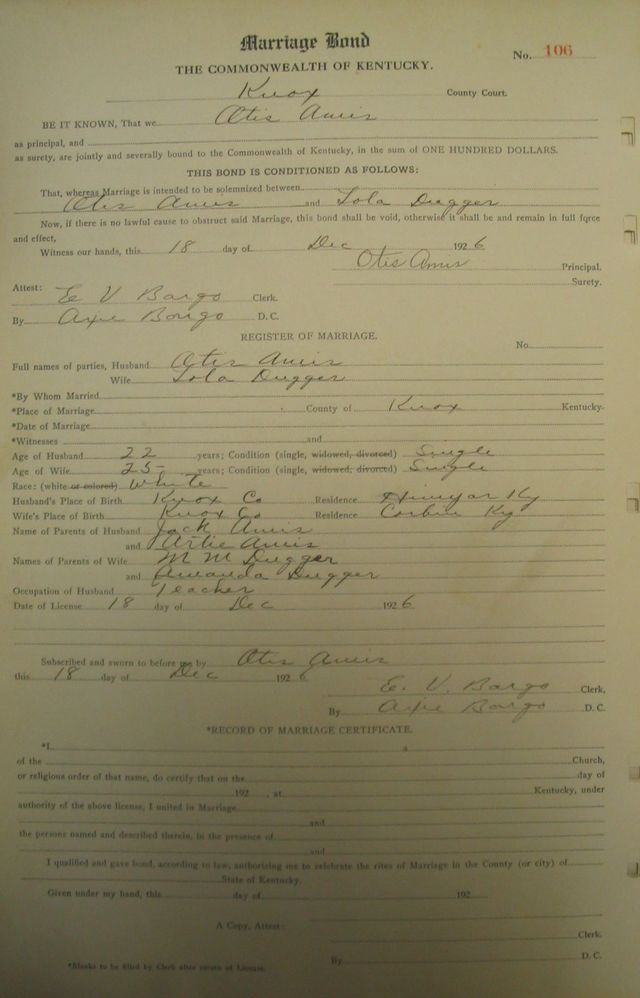 Marriage Bond
No. 106
THE COMMONWEALTH OF KENTUCKY.
Knox County Court.
BE IT KNOWN, That we Otis Amis
as principal, and
as surety, are jointly and severally bound to the Commonwealth of Kentucky, in the sum of ONE HUNDRED DOLLARS.
THIS BOND IS CONDITIONED AS FOLLOWS:
That, whereas Marriage is intended to be solemnized between
Otis Amis and Lola Dugger
Now, if there is no lawful cause to obstruct said Marriage, this bond shall be void, otherwise it shall be and remain in full force
and effect,
Witness our hands, this 18 day of Dec 1926
Otis Amis Principal.
Surety.
Attest: E V Bargo Clerk.
By Axie Bargo D. C.
REGISTER OF MARRIAGE.
No.
Full names of parties, Husband Otis Amis
Wife Lola Dugger
*By Whom Married
*Place of Marriage County of Knox Kentucky.
*Date of Marriage
*Witnesses and
Age of Husband 22 years; Condition (single, widowed, divorced) Single
Age of Wife 25 years; Condition (single, widowed, divorced) Single
Race: (white or colored) White
Husband's Place of Birth Knox Co Residence Himyar Ky
Wife's Place of Birth Knox Co Residence Corbin Ky
Name of Parents of Husband Jack Amis
and Artie Amis
Names of Parents of Wife M M Dugger
and Amanda Dugger
Occupation of Husband Teacher
Date of License 18 day of Dec 1926
Subscribed and sworn to before me by Otis Amis
this 18 day of Dec 1926
E. V. Bargo Clerk,
By Axie Bargo D. C.
*RECORD OF MARRIAGE CERTIFICATE.
*I, a
of the Church,
or religious order of that name, do certify that on the day of
192 , at Kentucky, under
authority of the above license, I united in Marriage
and
the persons named and described therein, in the presence of
and
I qualified and gave bond, according to law, authorizing me to celebrate the rites of Marriage in the County (or city) of
State of Kentucky.
Given under my hand, this day of 192
A Copy, Attest:
Clerk.
By D. C.
*Blanks to be filled by Clerk after return of License.